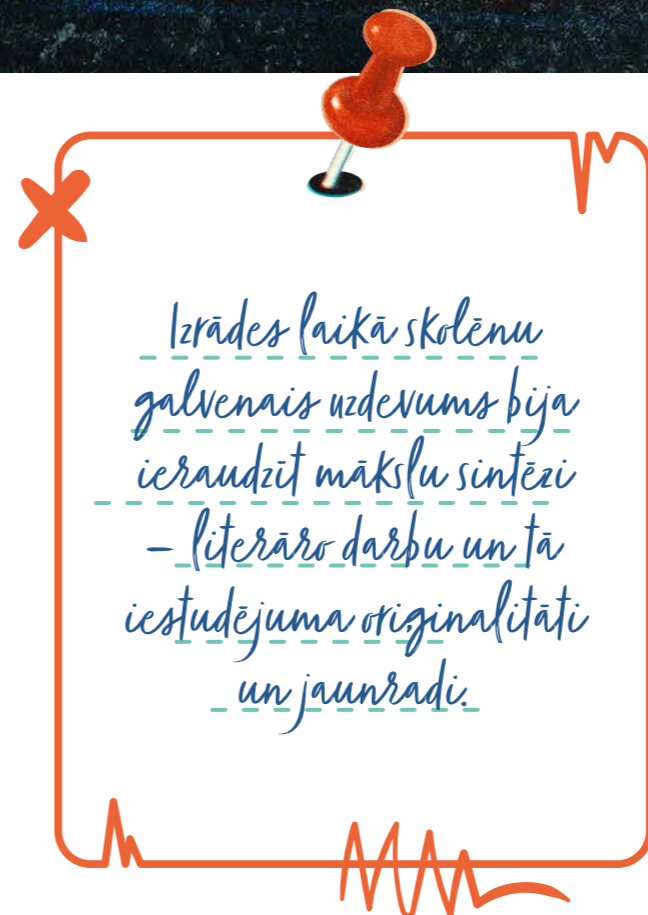 Izrādes laikā skolēnu
galvenais uzdevums bija
ieraudzīt mākslu sintēzi
– literāro darbu un tā
iestudējuma oriģinalitāti
un jaunradi.